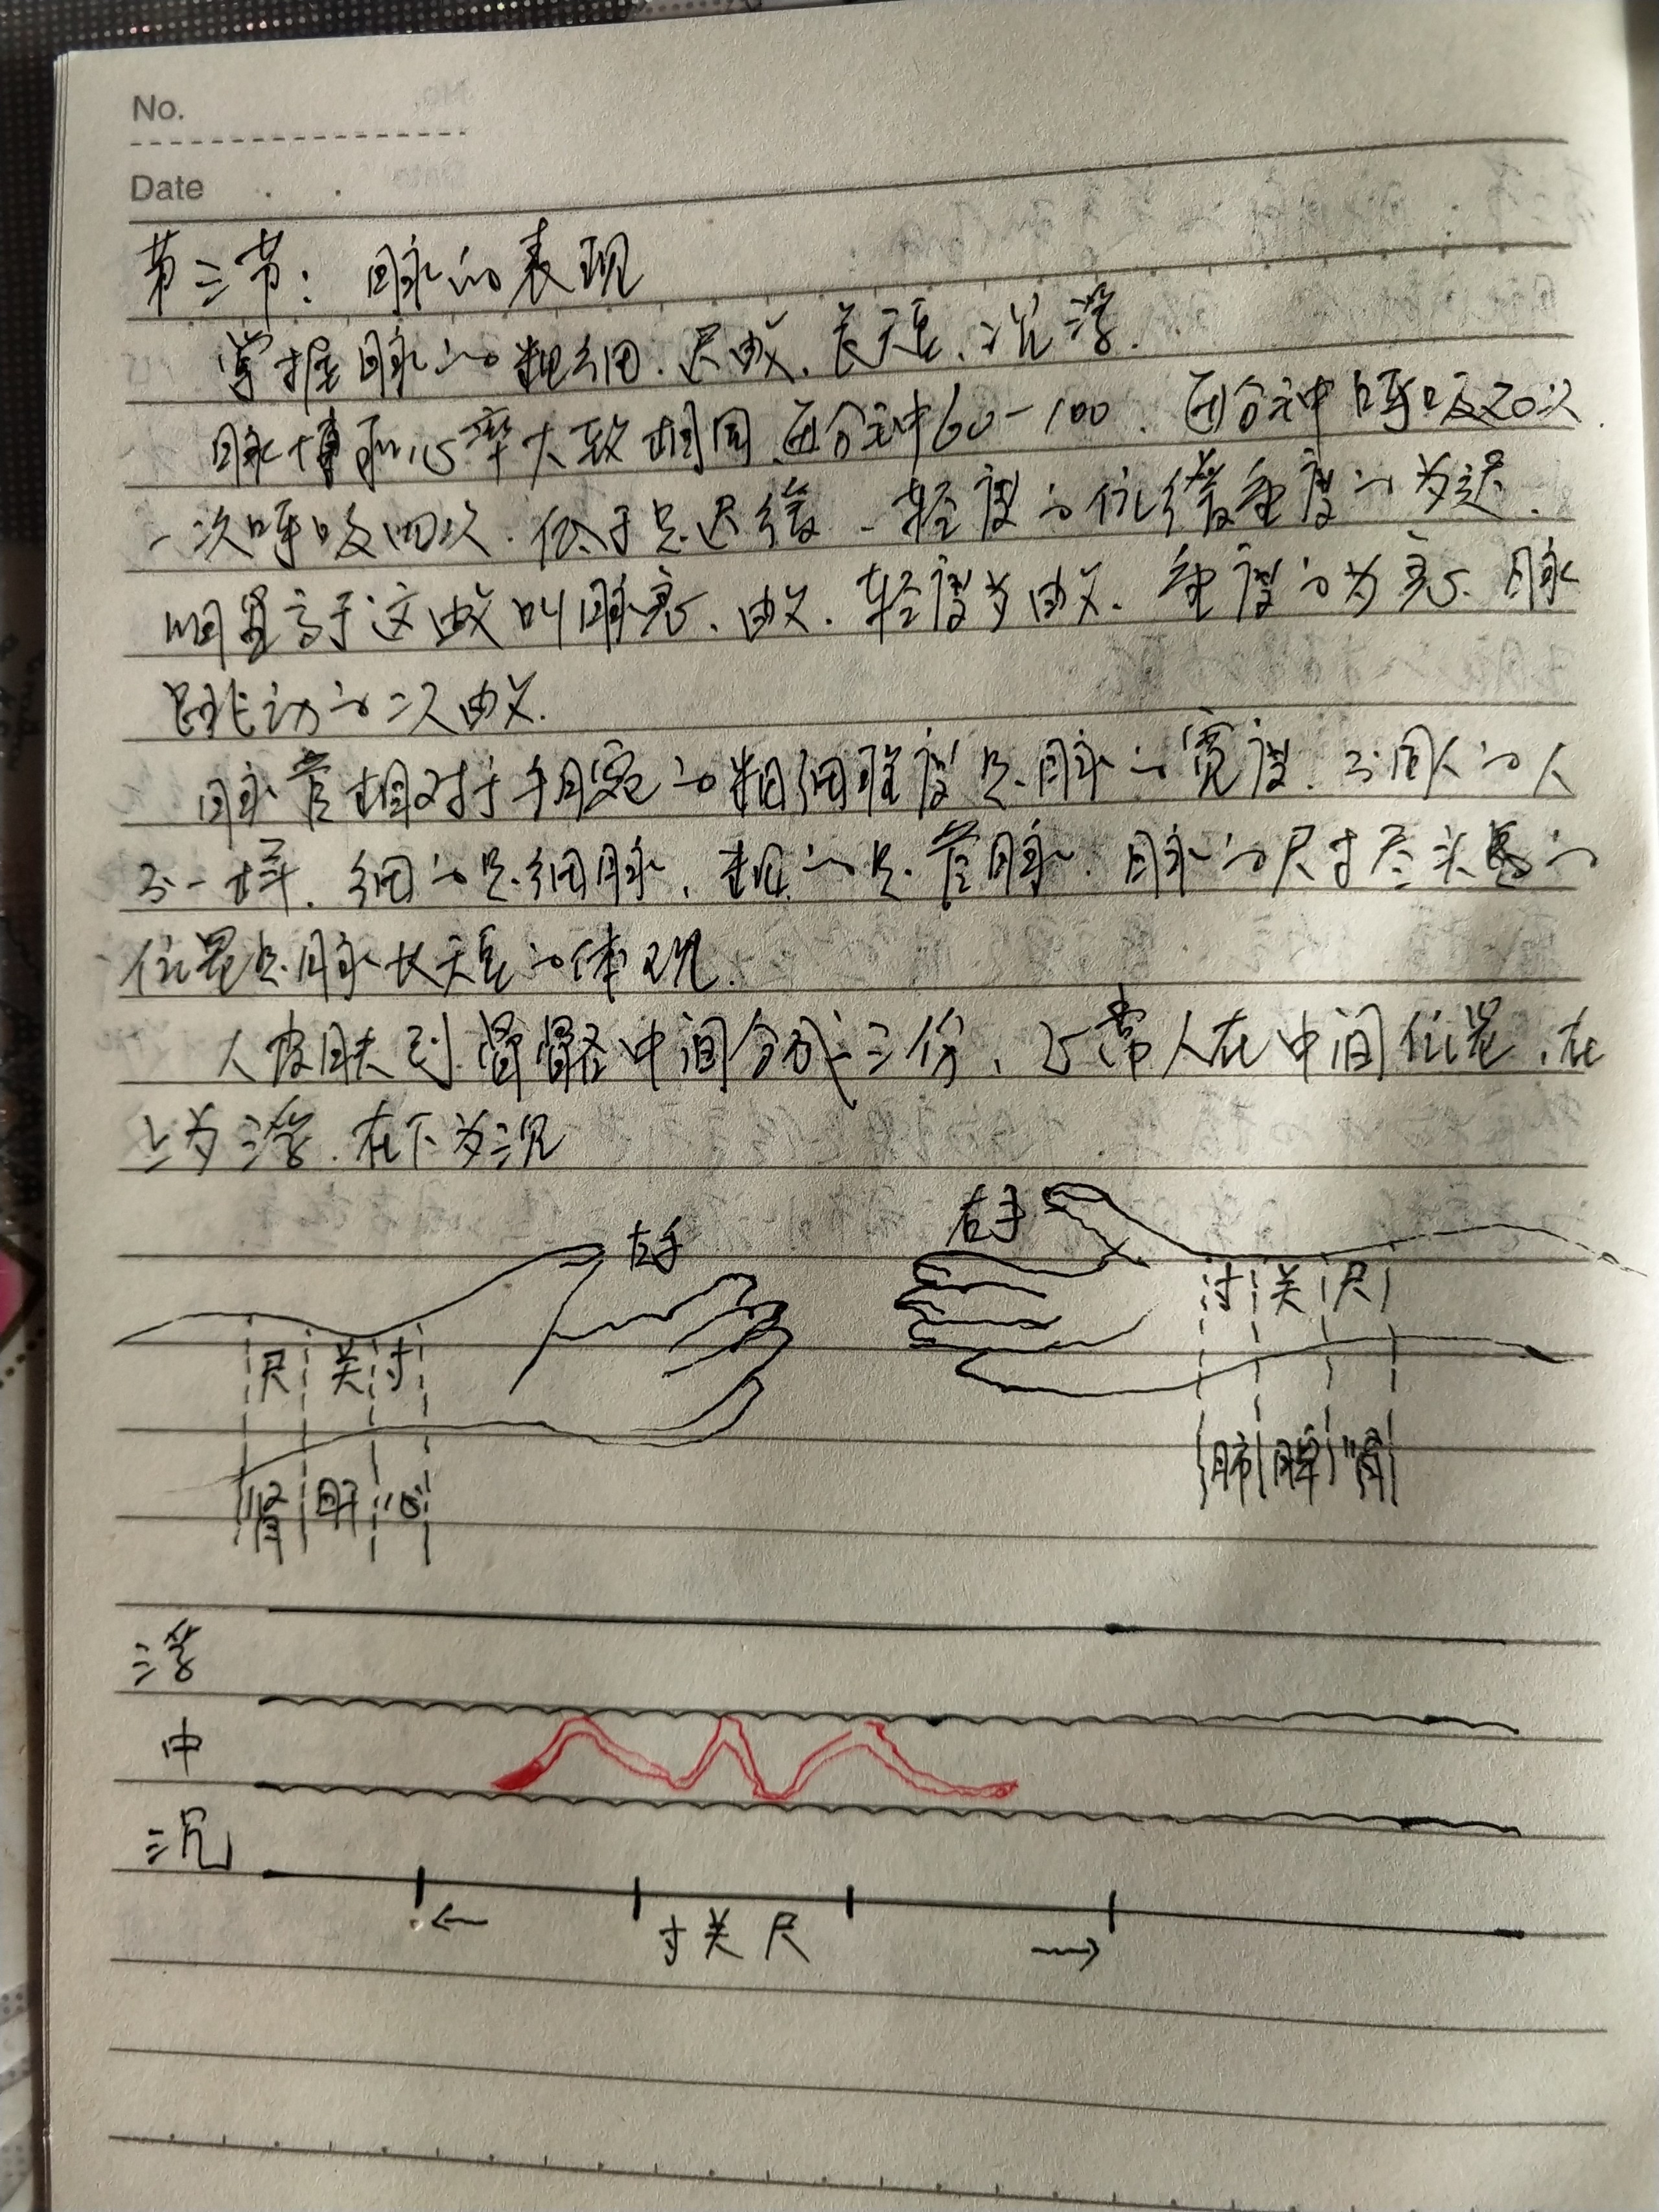 No.
Date
第三节：脉的表现
掌握脉的粗细.迟数.长短、沉浮.
脉搏和心率大致相同.每分钟60-100.每分钟呼吸20次.
一次呼吸四次.低于是迟缓.轻度的位缓重度的为迟.
明显高于这数叫脉疾、数.轻度为数.重度的为疾.脉
跳动的次数.
脉管相对于手腕的粗细程度是脉的宽度.不同人的人
不一样.细的是细脉,粗的是 脉.脉的尺寸尽头的
位置是脉长短的体现.
人皮肤到骨骼中间分成三份,正常人在中间位置,在
上为浮.在下为沉
左手
右手
寸 关 尺
尺 关 寸
肺 脾 肾
肾 肝 心
浮
中
沉
← 寸关尺 →